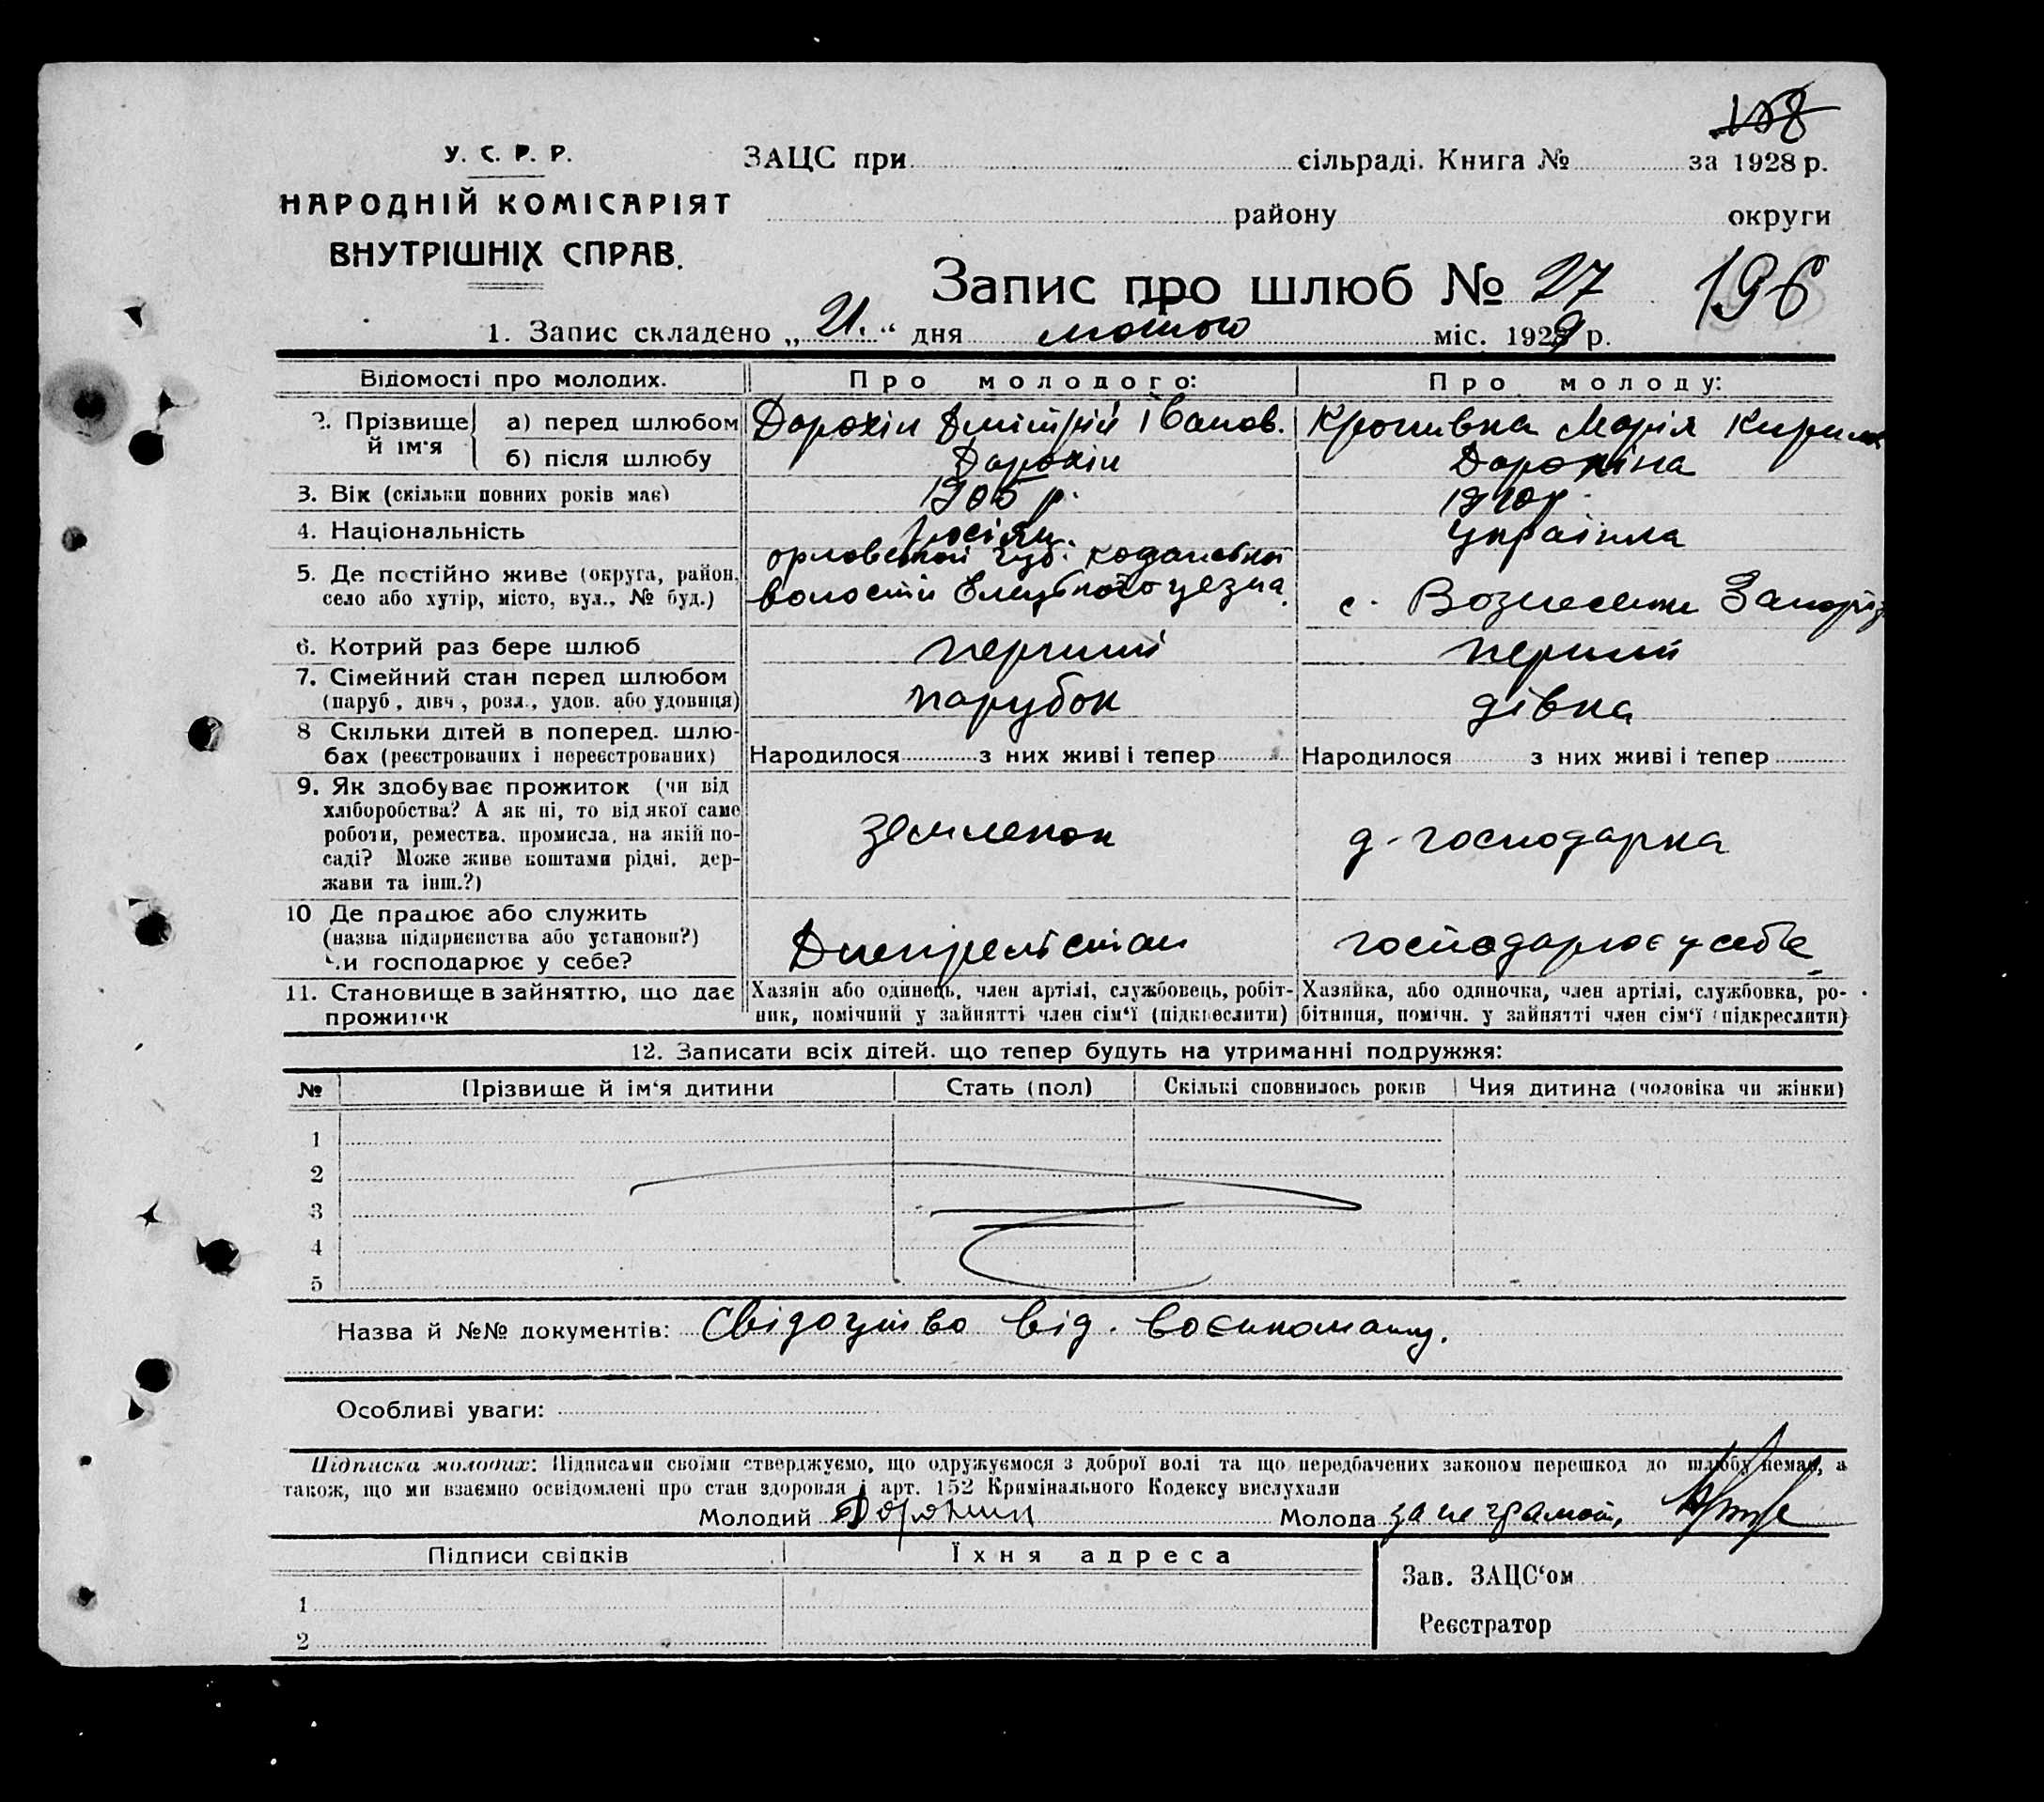 158
У. С. Р. Р.
НАРОДНІЙ КОМІСАРІЯТ
ВНУТРІШНІХ СПРАВ.
ЗАЦС при сільраді. Книга № за 1928 р.
району округи
Запис про шлюб № 27 196
1. Запис складено „21.“ дня лютого міс. 1929 р.
Відомості про молодих. Про молодого: Про молоду:
2. Прізвище й ім'я а) перед шлюбом Дорохін Дмітрій Іванов. Кропивка Марія
б) після шлюбу Дорохін Дорохіна
3. Вік (скільки повних років має) 1905 р. 1910 р.
4. Національність росіян. українка
5. Де постійно живе (округа, район, село або хутір, місто, вул., № буд.) орловської губ. волости Елецького уезда. с. Вознесенки Запоріз
6. Котрий раз бере шлюб перший перший
7. Сімейний стан перед шлюбом (паруб., дівч., розл., удов. або удовиця) парубок дівка
8 Скільки дітей в поперед. шлюбах (реєстрованих і нереєстрованих) Народилося з них живі і тепер Народилося з них живі і тепер
9. Як здобуває прожиток (чи від
хліборобства? А як ні, то від якої саме
роботи, ремества, промисла, на якій по-
саді? Може живе коштами рідні, дер-
жави та інш.?) землекоп д-господарка
10 Де працює або служить
(назва підприємства або установи?)
Чи господарює у себе? Днепрельстан господарює у себе
11. Становище в зайняттю, що дає прожиток
Хазяїн або одинець, член артілі, службовець, робіт-
ник, помічний у зайнятті член сім'ї (підкреслити)
Хазяйка, або одиночка, член артілі, службовка, ро-
бітниця, помічн. у зайнятті член сім'ї (підкреслити)
12. Записати всіх дітей. що тепер будуть на утриманні подружжя:
№ Прізвище й ім'я дитини Стать (пол) Скількі сповнилось років Чия дитина (чоловіка чи жінки)
1
2
3
4
5
Назва й №№ документів: Свідоцтво від. воєнкомату.
Особливі уваги:
Підписка молодих: Підписами своїми стверджуємо, що одружуємося з доброї волі та що передбачених законом перешкод до шлюбу немає, а
також, що ми взаємно освідомлені про стан здоровля і арт. 152 Кримінального Кодексу вислухали
Молодий Дорохин Молода за не грамот.
Підписи свідків Їхня адреса
Зав. ЗАЦС'ом
1
Реєстратор
2